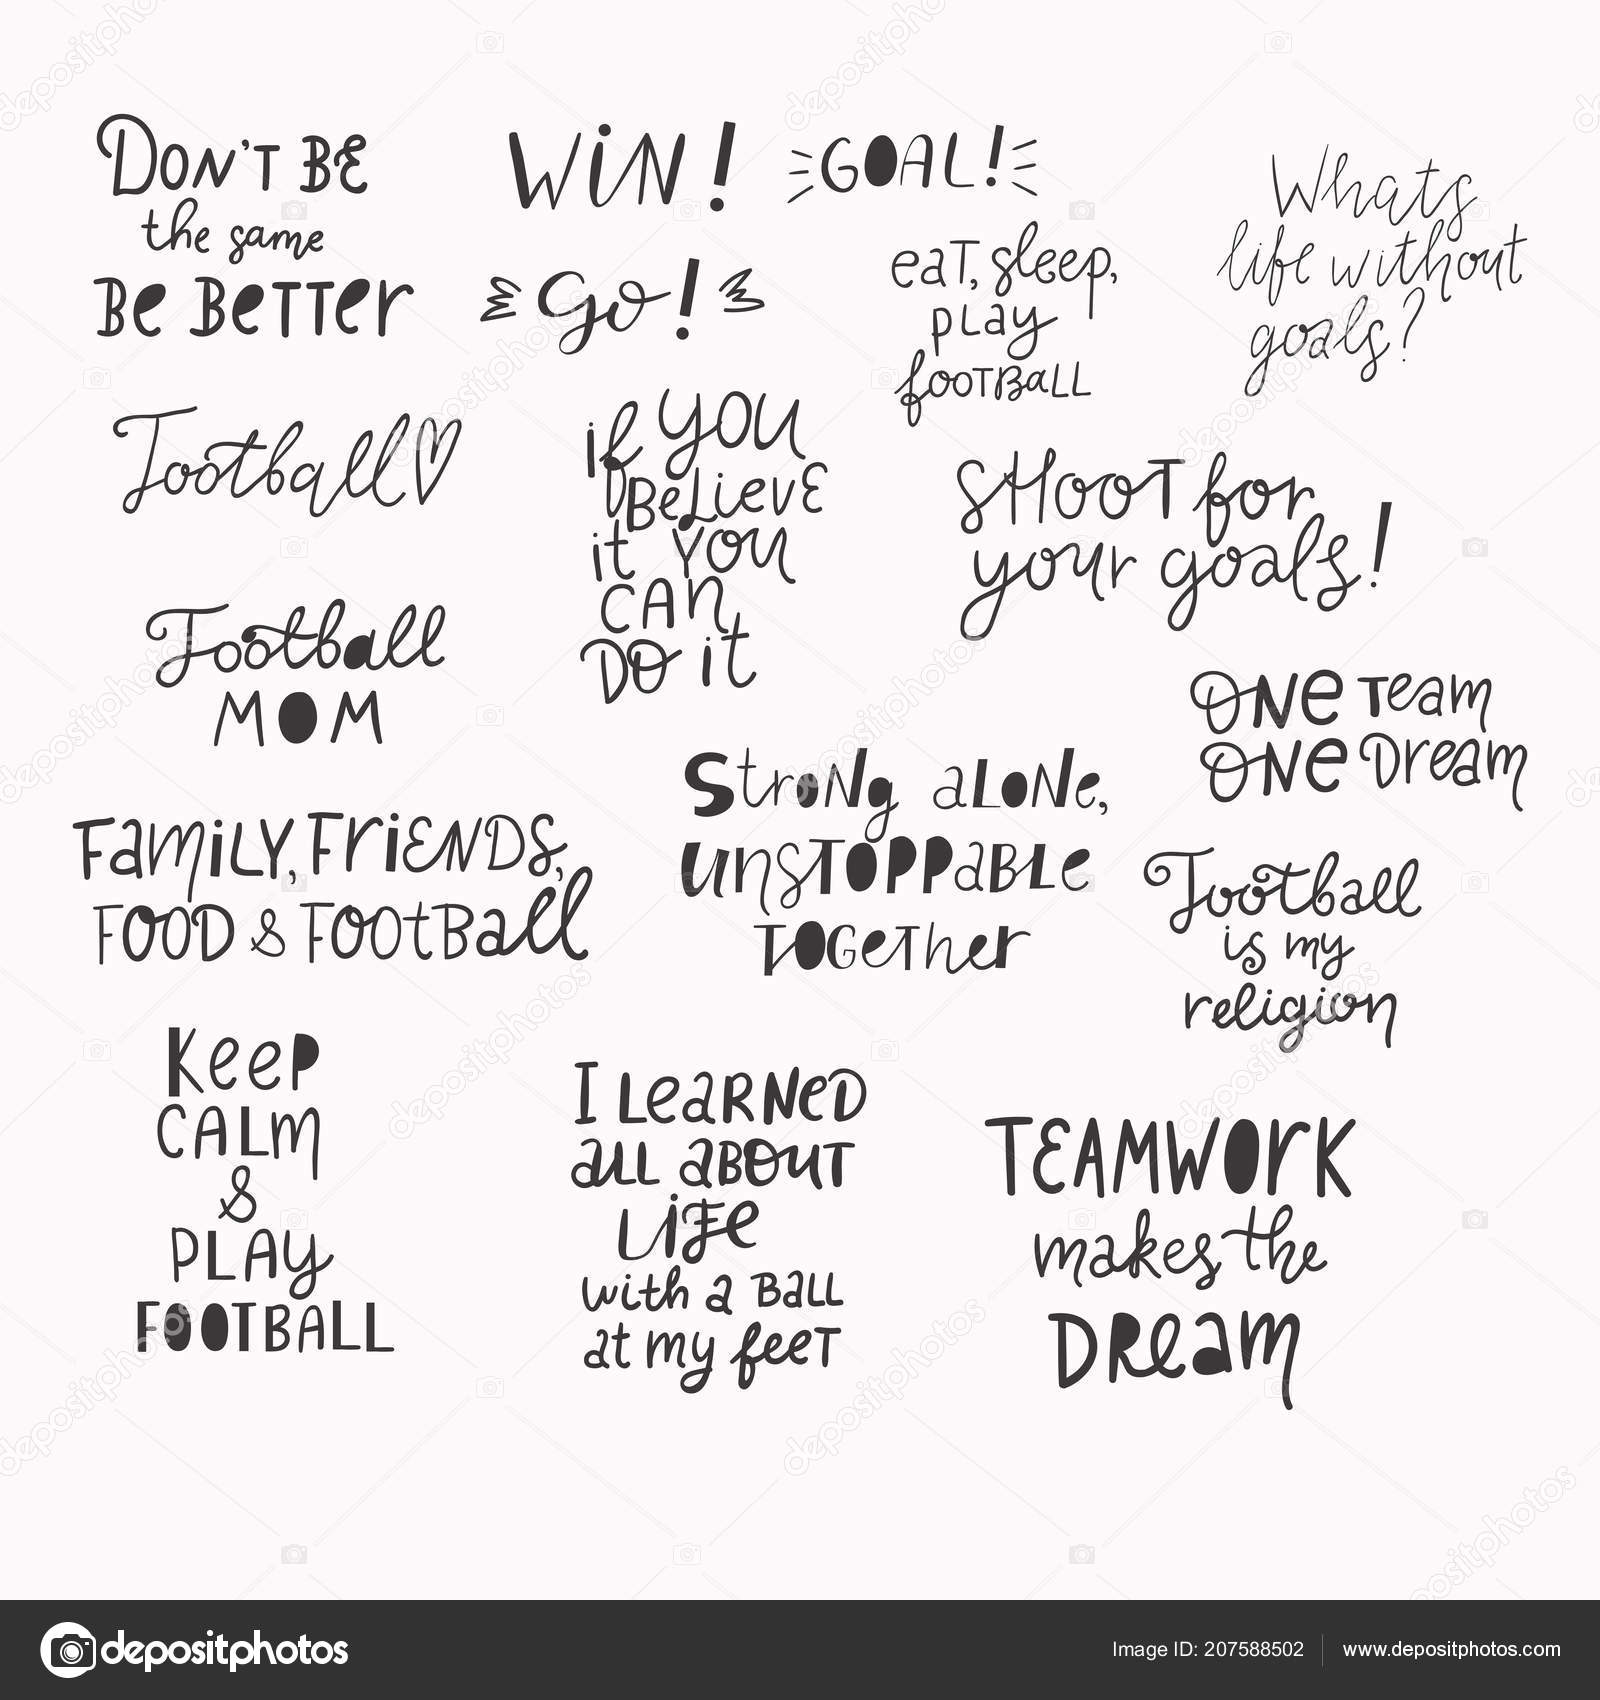 DON'T BE
the same
Be BeTTer
WiN!
Go!
GOAL!
eaT, sleep,
play
fooTBaLL
Whats
life without
goals?
Football
if you
BeLieve
it you
can
Do it
SHOOT for
your goals!
Football
MOM
ONe Team
ONe Dream
Strong alone,
unstoppable
together
Family, Friends,
Food & Football
Football
is my
religion
Keep
CALM
&
PLAY
FOOTBALL
I Learned
all about
Life
with a Ball
at my feet
TEAMWORK
makes the
Dream
depositphotos
Image ID: 207588502
www.depositphotos.com